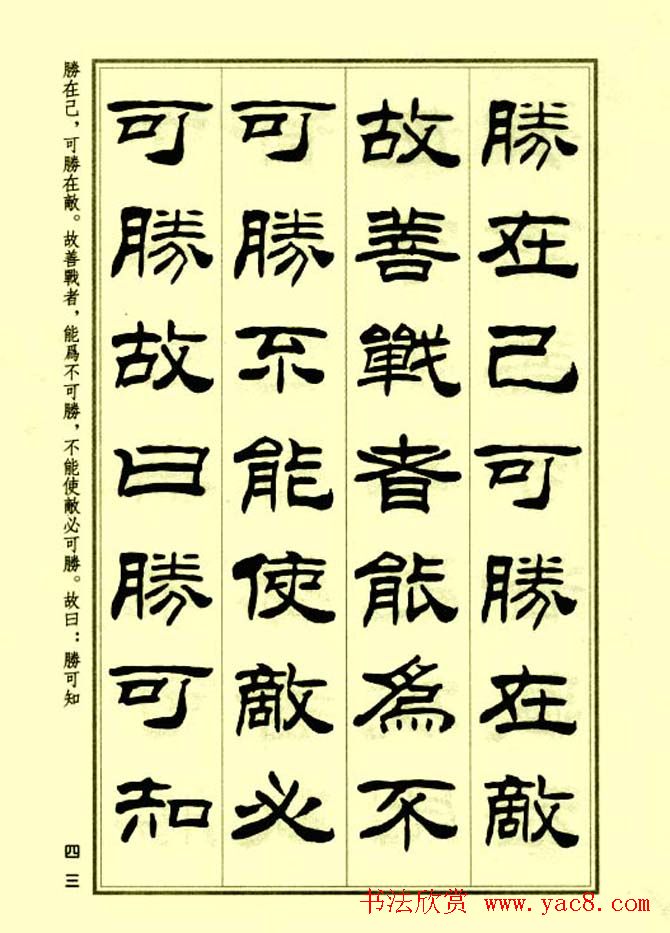 勝在己可勝在敵
故善戰者能爲不
可勝不能使敵必
可勝故曰勝可知
勝在己，可勝在敵。故善戰者，能爲不可勝，不能使敵必可勝。故曰：勝可知
四三
书法欣赏 www.yac8.com